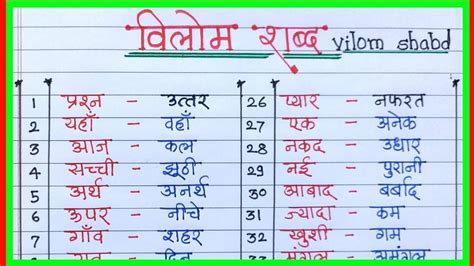 विलोम शब्द vilom shabd
1 प्रश्न - उत्तर
2 यहाँ - वहाँ
3 आज - कल
4 सच्ची - झूठी
5 अर्थ - अनर्थ
6 ऊपर - नीचे
7 गाँव - शहर
दिन
26 प्यार - नफरत
27 एक - अनेक
28 नकद - उधार
29 नई - पुरानी
30 आबाद - बर्बाद
31 ज्यादा - कम
32 खुशी - गम
मंगल - अमंगल